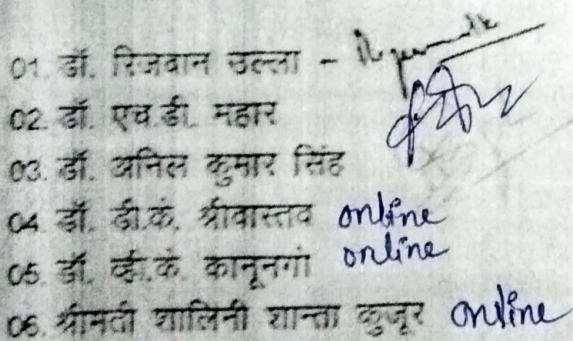 01. डॉ. रिजवान उल्ला -
02. डॉ. एच.डी. महार
03. डॉ. अनिल कुमार सिंह
04. डॉ. डी.के. श्रीवास्तव online
05. डॉ. व्ही.के. कानूनगो online
06. श्रीमती शालिनी शान्ता कुजूर online